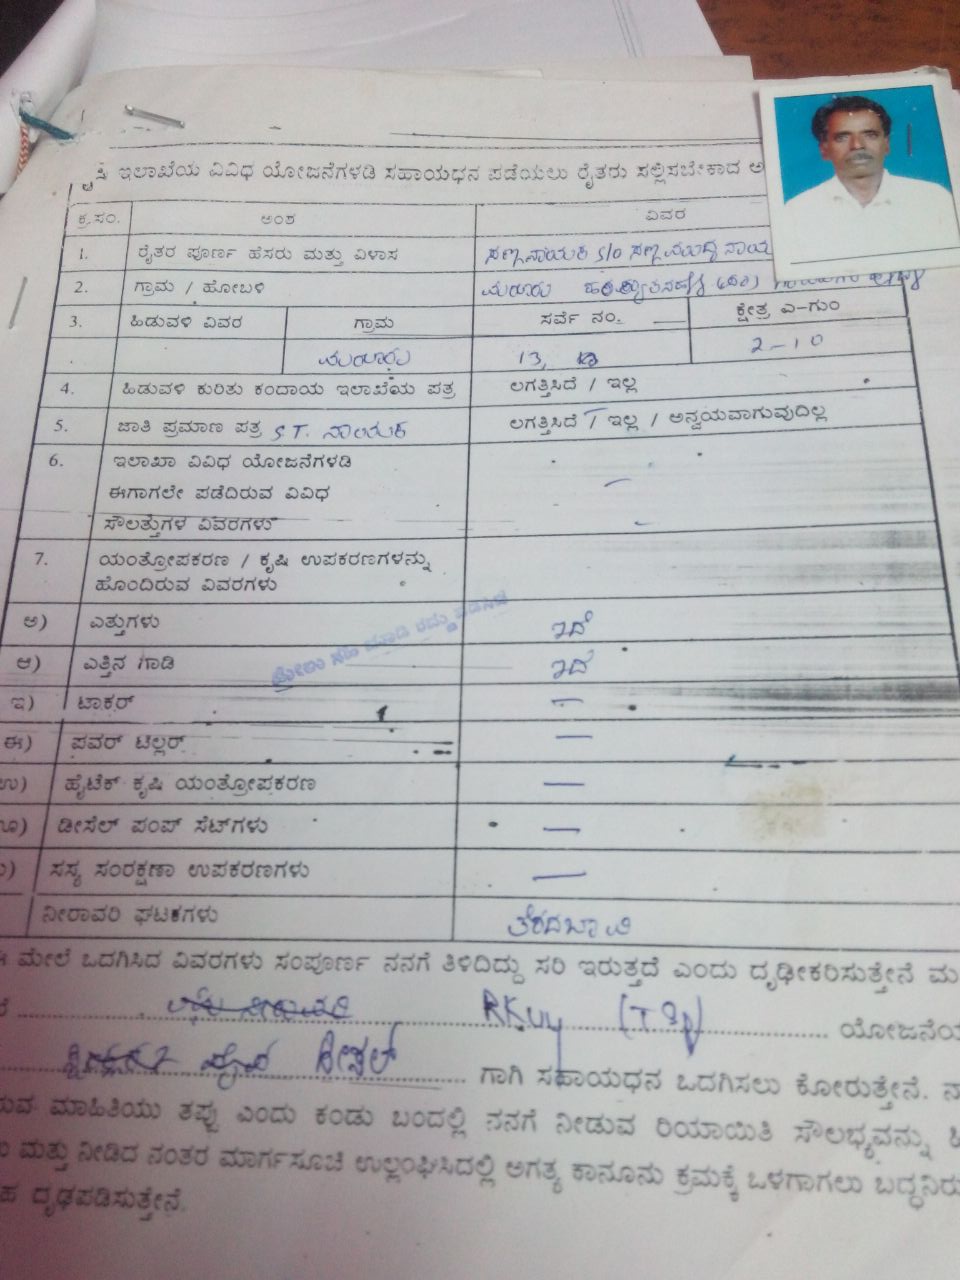 ಕೃಷಿ ಇಲಾಖೆಯ ವಿವಿಧ ಯೋಜನೆಗಳಡಿ ಸಹಾಯಧನ ಪಡೆಯಲು ರೈತರು ಸಲ್ಲಿಸಬೇಕಾದ
ಕ್ರ.ಸಂ. ಅಂಶ ವಿವರ
1. ರೈತರ ಪೂರ್ಣ ಹೆಸರು ಮತ್ತು ವಿಳಾಸ ಸಣ್ಣನಾಯಕ S/o ಸಣ್ಣ
2. ಗ್ರಾಮ / ಹೋಬಳಿ
3. ಹಿಡುವಳಿ ವಿವರ ಗ್ರಾಮ ಸರ್ವೆ ನಂ. ಕ್ಷೇತ್ರ ಎ-ಗುಂ
13, 2-10
4. ಹಿಡುವಳಿ ಕುರಿತು ಕಂದಾಯ ಇಲಾಖೆಯ ಪತ್ರ ಲಗತ್ತಿಸಿದೆ / ಇಲ್ಲ
5. ಜಾತಿ ಪ್ರಮಾಣ ಪತ್ರ ST. ನಾಯಕ ಲಗತ್ತಿಸಿದೆ / ಇಲ್ಲ / ಅನ್ವಯವಾಗುವುದಿಲ್ಲ
6. ಇಲಾಖಾ ವಿವಿಧ ಯೋಜನೆಗಳಡಿ
ಈಗಾಗಲೇ ಪಡೆದಿರುವ ವಿವಿಧ
ಸೌಲತ್ತುಗಳ ವಿವರಗಳು
7. ಯಂತ್ರೋಪಕರಣ / ಕೃಷಿ ಉಪಕರಣಗಳನ್ನು
ಹೊಂದಿರುವ ವಿವರಗಳು
ಅ) ಎತ್ತುಗಳು ಇದೆ
ಆ) ಎತ್ತಿನ ಗಾಡಿ ಇದೆ
ಇ) ಟಾಕರ್ —
ಈ) ಪವರ್ ಟಿಲ್ಲರ್ —
ಉ) ಹೈಟೆಕ್ ಕೃಷಿ ಯಂತ್ರೋಪಕರಣ —
ಊ) ಡೀಸೆಲ್ ಪಂಪ್ ಸೆಟ್‌ಗಳು —
ಸಸ್ಯ ಸಂರಕ್ಷಣಾ ಉಪಕರಣಗಳು —
ನೀರಾವರಿ ಘಟಕಗಳು ತೆರದಬಾವಿ
ಮೇಲೆ ಒದಗಿಸಿದ ವಿವರಗಳು ಸಂಪೂರ್ಣ ನನಗೆ ತಿಳಿದಿದ್ದು ಸರಿ ಇರುತ್ತದೆ ಎಂದು ದೃಢೀಕರಿಸುತ್ತೇನೆ
RKVY ಯೋಜನೆಯ
ಗಾಗಿ ಸಹಾಯಧನ ಒದಗಿಸಲು ಕೋರುತ್ತೇನೆ.
ಮಾಹಿತಿಯು ತಪ್ಪು ಎಂದು ಕಂಡು ಬಂದಲ್ಲಿ ನನಗೆ ನೀಡುವ ರಿಯಾಯಿತಿ ಸೌಲಭ್ಯವನ್ನು
ಮತ್ತು ನೀಡಿದ ನಂತರ ಮಾರ್ಗಸೂಚಿ ಉಲ್ಲಂಘಿಸಿದಲ್ಲಿ ಅಗತ್ಯ ಕಾನೂನು ಕ್ರಮಕ್ಕೆ ಒಳಗಾಗಲು
ದೃಢಪಡಿಸುತ್ತೇನೆ.